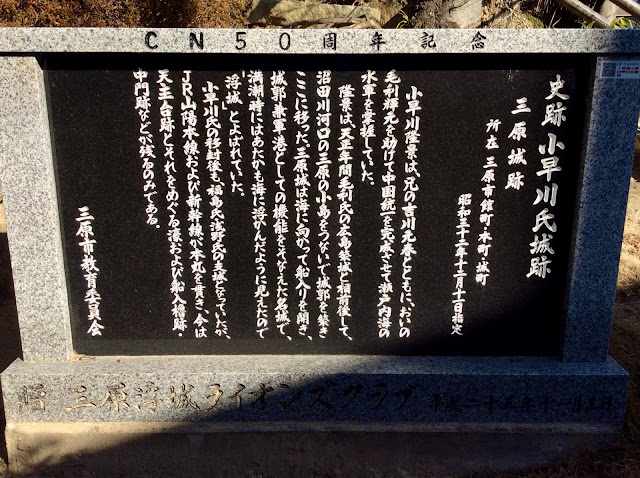 CN50周年記念
史跡 小早川氏城跡
三原城跡
所在 三原市館町・本町・城町
昭和三十二年十二月十一日指定
小早川隆景は、兄の吉川元春とともに、おいの
毛利輝元を助けて中国統一を完成させて瀬戸内海の
水軍を掌握していた。
隆景は、天正年間毛利氏の広島築城と相前後して、
沼田川河口の三原の小島をつないで城郭を築き
ここに移った。三原城は海に向かって船入りを開き、
城郭兼軍港としての機能をそなえた名城で、
満潮時にはあたかも海に浮かんだように見えたので
浮城とよばれていた。
小早川氏の移封後も福島氏浅野氏の支城となっていたが、
JR山陽本線および新幹線が本丸を貫き、今は
天主台跡とそれをめぐる濠および船入櫓跡・
中門跡などが残るのみである。
三原市教育委員会
贈 三原浮城ライオンズクラブ 平成二十五年十一月三日